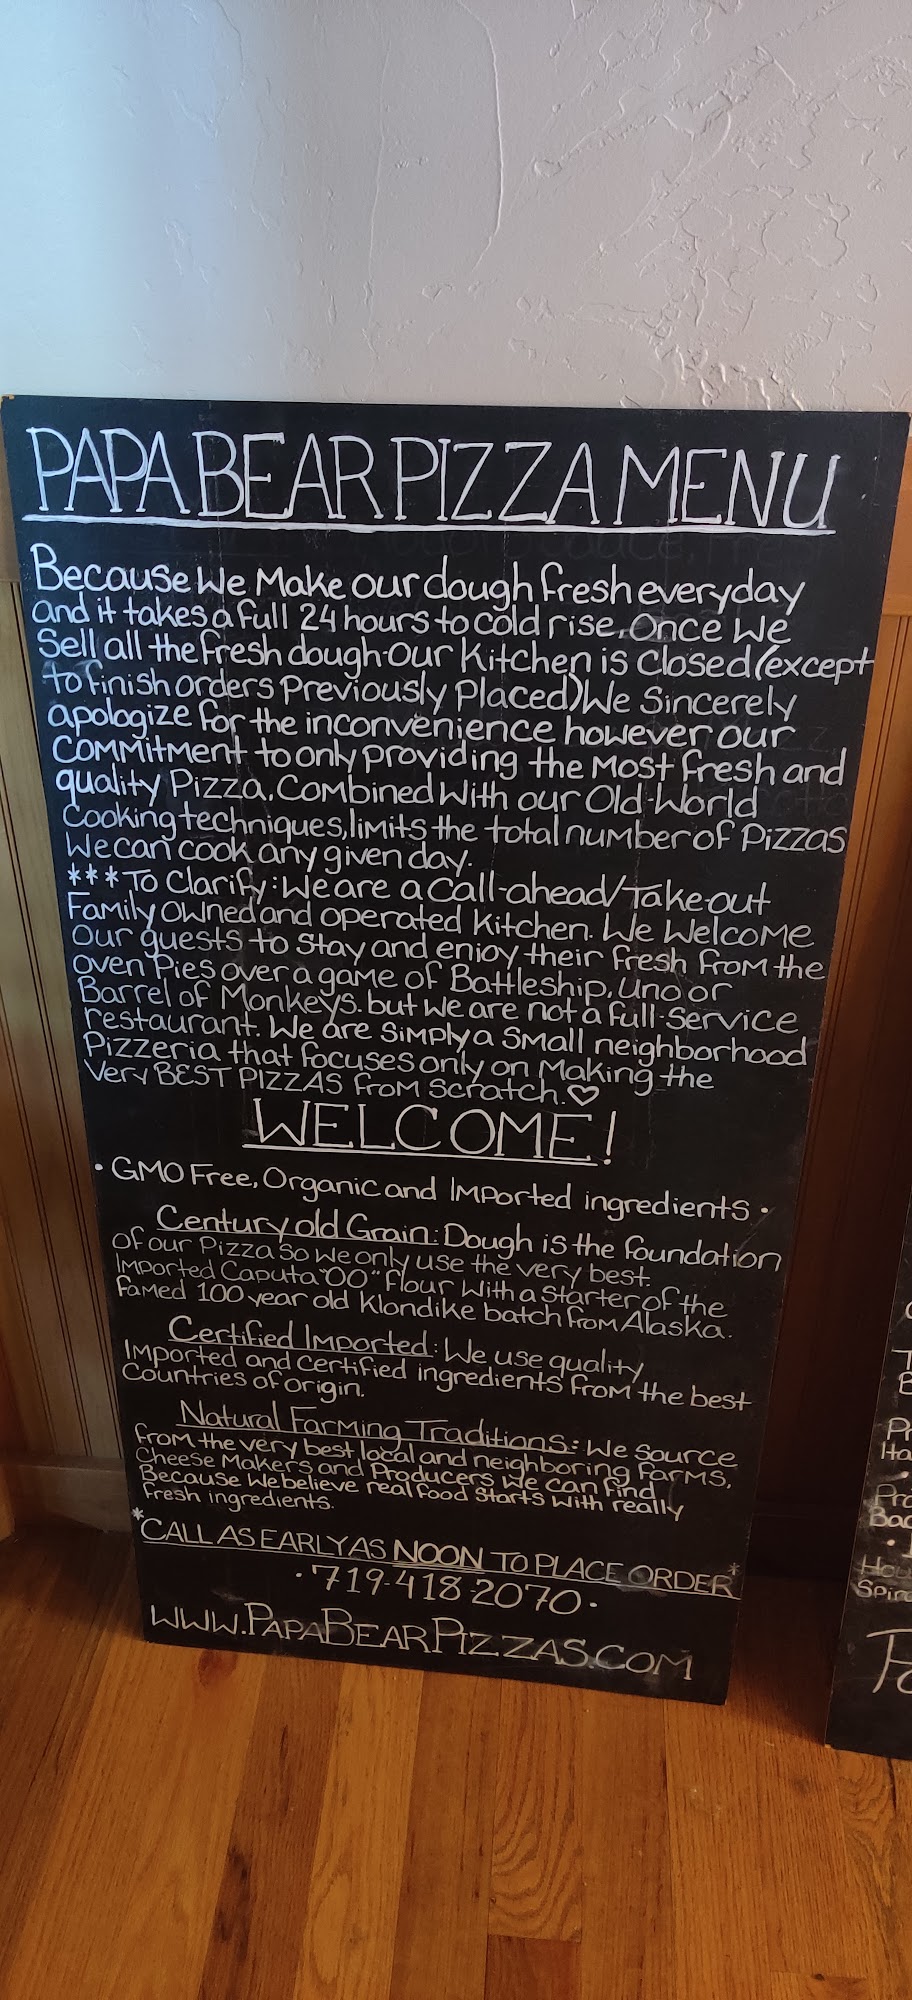 PAPA BEAR PIZZA MENU
Because We Make our dough fresh everyday
and it takes a full 24 hours to cold rise. Once We
Sell all the fresh dough-our Kitchen is Closed (except
to finish orders Previously Placed) We Sincerely
apologize for the inconvenience however our
Commitment to only providing the Most fresh and
quality Pizza. Combined With our Old-World
Cooking techniques, limits the total number of Pizzas
We can cook any given day.
***To Clarify: We are a Call-ahead/Take-out
Family Owned and operated Kitchen. We Welcome
Our guests to Stay and enjoy their fresh from the
oven Pies over a game of Battleship, Uno or
Barrel of Monkeys. but we are not a full-Service
restaurant. We are Simply a Small neighborhood
Pizzeria that focuses only on Making the
Very BEST PIZZAS from Scratch. ♡
WELCOME!
• GMO Free, Organic and Imported ingredients •
Century old Grain: Dough is the foundation
of our Pizza So We only use the very best.
Imported Caputa "OO" flour With a Starter of the
famed 100 year old Klondike batch from Alaska.
Certified Imported: We use quality
Imported and Certified ingredients from the best
Countries of origin.
Natural Farming Traditions: We Source
from the very best local and neighboring farms,
Cheese Makers and Producers We Can find
Because We believe real food Starts With really
fresh ingredients.
*CALL AS EARLY AS NOON TO PLACE ORDER*
•719-418-2070•
WWW.PAPABEARPIZZAS.COM